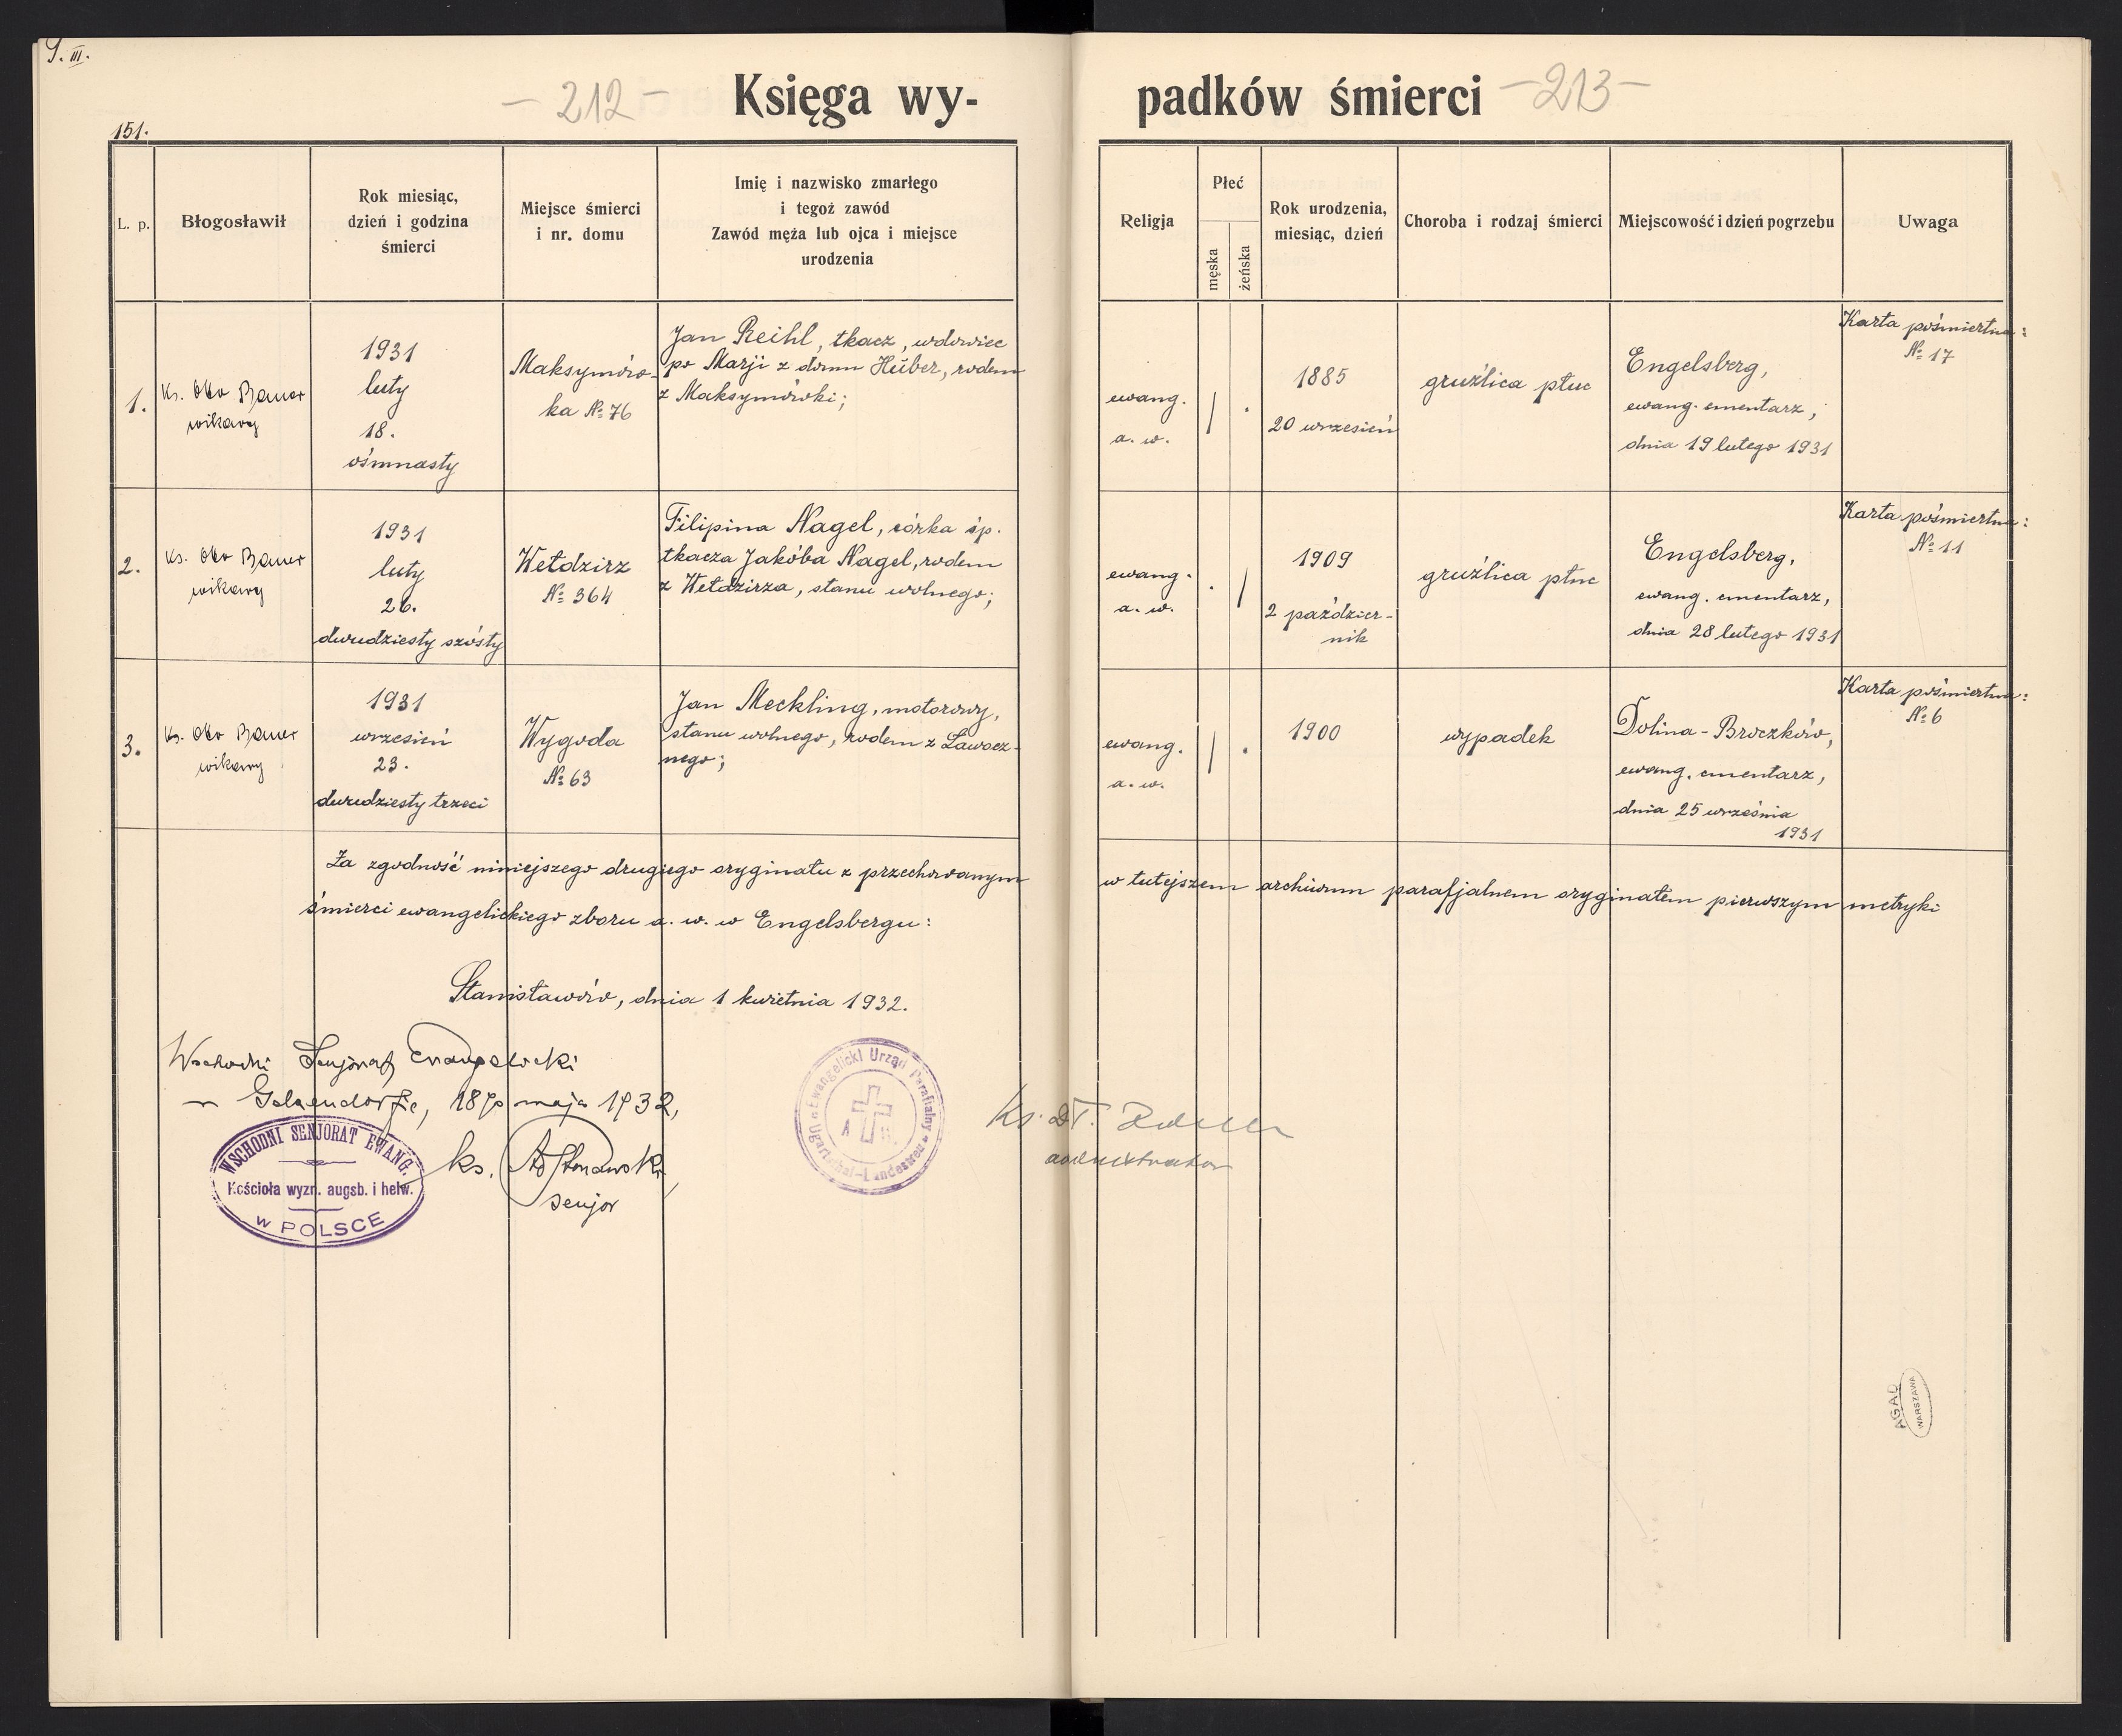 S. III.
- 212 -
Księga wy-
padków śmierci
- 213 -
151.
L. p.
Błogosławił
Rok miesiąc,
dzień i godzina
śmierci
Miejsce śmierci
i nr. domu
Imię i nazwisko zmarłego
i tegoż zawód
Zawód męża lub ojca i miejsce
urodzenia
Religja
Płeć
męska
żeńska
Rok urodzenia,
miesiąc, dzień
Choroba i rodzaj śmierci
Miejscowość i dzień pogrzebu
Uwaga
1.
Ks. Otto Bauer
wikary
1931
luty
18.
ośmnasty
Maksymów-
ka № 76
Jan Reihl, tkacz, wdowiec
po Marji z domu Huber, rodem
z Maksymówki;
ewang.
a. w.
1885
20 wrzesień
gruźlica płuc
Engelsberg,
ewang. cmentarz,
dnia 19 lutego 1931
Karta pośmiertna:
№ 17
2.
Ks. Otto Bauer
wikary
1931
luty
26.
dwudziesty szósty
Wełdzirz
№ 364
Filipina Nagel, córka śp.
tkacza Jakóba Nagel, rodem
z Wełdzirza, stanu wolnego;
ewang.
a. w.
1909
2 paździer-
nik
gruźlica płuc
Engelsberg,
ewang. cmentarz,
dnia 28 lutego 1931
Karta pośmiertna:
№ 11
3.
Ks. Otto Bauer
wikary
1931
wrzesień
23.
dwudziesty trzeci
Wygoda
№ 63
Jan Meckling, motorowy,
stanu wolnego, rodem z Ławocz-
nego;
ewang.
a. w.
1900
wypadek
Dolina - Broczków,
ewang. cmentarz,
dnia 25 września
1931
Karta pośmiertna:
№ 6
Za zgodność niniejszego drugiego oryginału z przechowanym w tutejszem archiwum parafjalnem oryginałem pierwszym metryki
śmierci ewangelickiego zboru a. w. w Engelsbergu:
Stanisławów, dnia 1 kwietnia 1932.
Wschodni Senjorat Ewangelicki
w Gelsendorfie, 18go maja 1932,
ks.
senjor
WSCHODNI SENJORAT EWANG.
Kościoła wyzn. augsb. i helw.
w POLSCE
Ewangelicki Urząd Parafialny
Ugartsthal-Landestreu
Ks.
administrator
AGAD
WARSZAWA